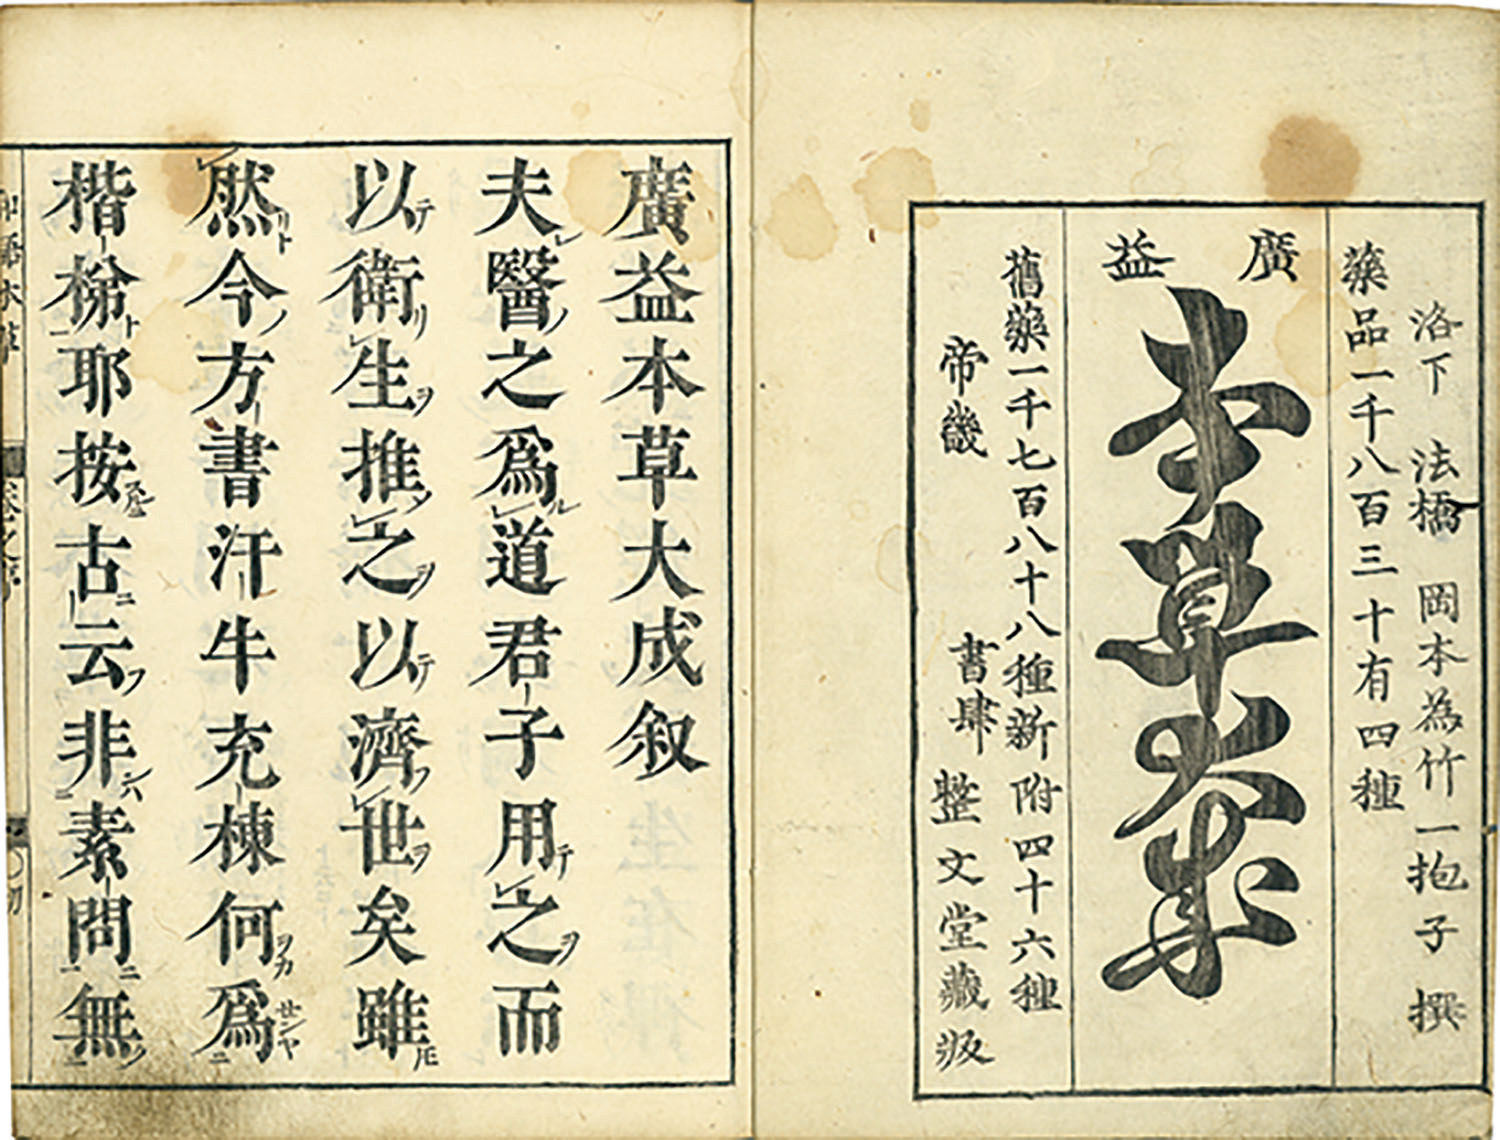 洛下 法橋 岡本為竹一抱子 撰
藥品一千八百三十有四種
廣益
本草大成
舊藥一千七百八十八種新附四十六種
帝畿 書肆 整文堂藏版
廣益本草大成叙
夫醫之爲道君子用之而
以衛生推之以濟世矣雖
然今方書汗牛充棟何爲
楷梯耶按古云非素問無